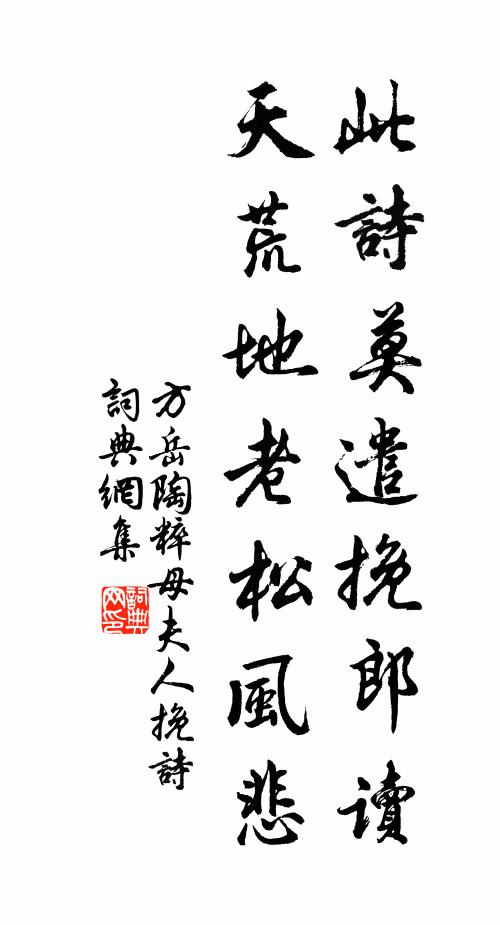 此詩莫遣挽郎读
天荒地老松風悲
方岳陶粹母夫人挽詩
詞典網集
詞典网印